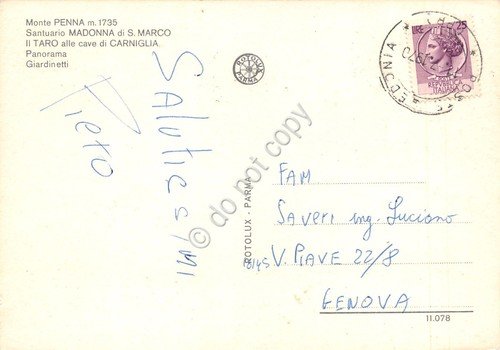 Monte PENNA m. 1735
Santuario MADONNA di S. MARCO
Il TARO alle cave di CARNIGLIA
Panorama
Giardinetti
ROTOLUX
PARMA
LIRE 25
REPUBBLICA
ITALIANA
Saluticissimi
Piero
do not copy
ROTOLUX - PARMA
FAM
Saveri ing. Luciano
16145 V. PIAVE 22/8
GENOVA
11.078